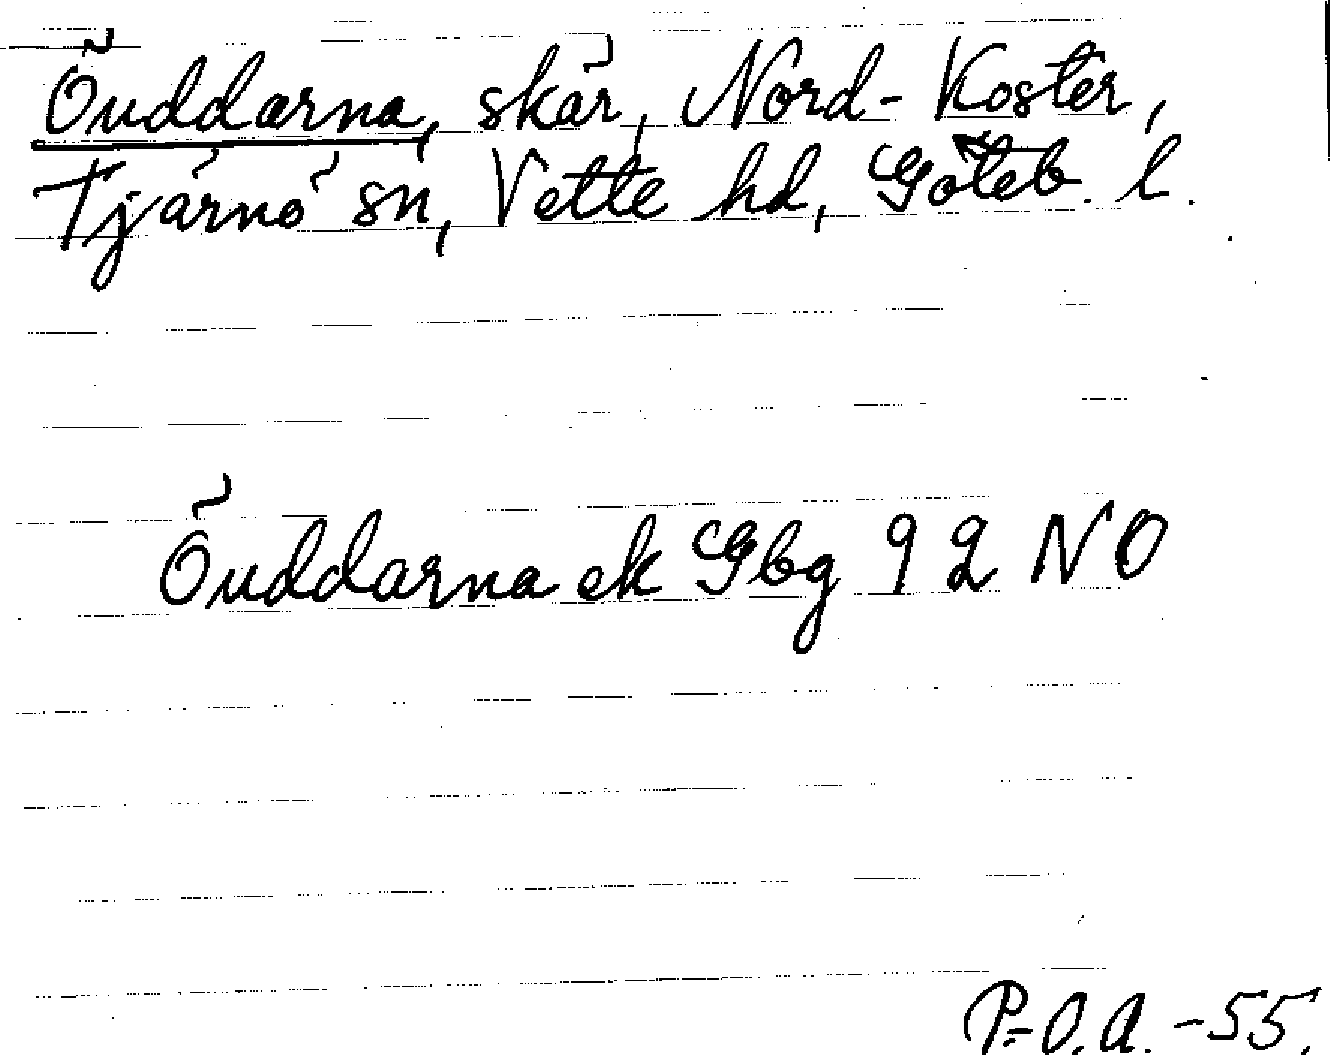 Öuddarna, skär, Nord-Koster,
Tjärnö sn, Vette hd, Göteb. l.
Öuddarna ek Gbg 9 2 NO
P-O.A. -55.